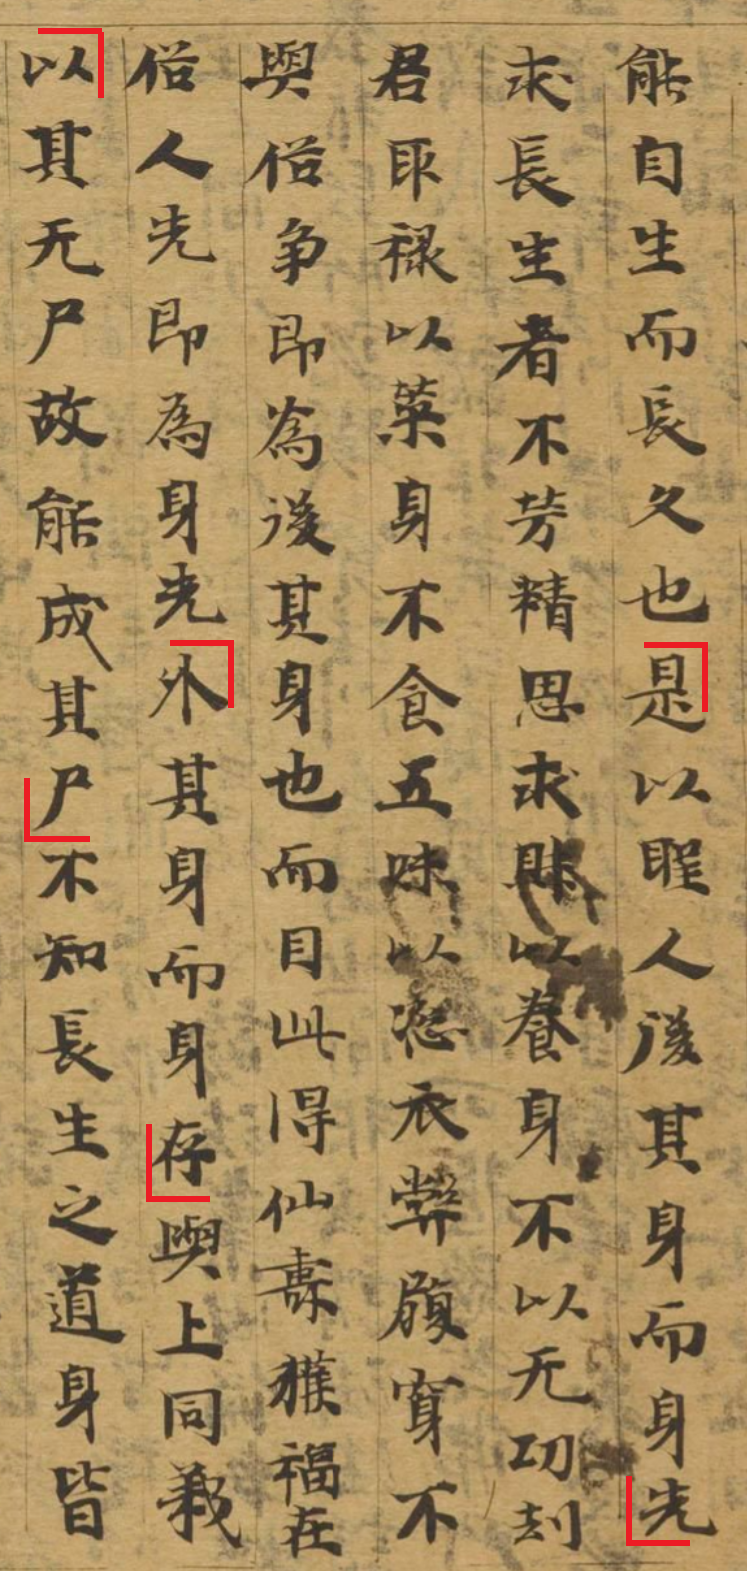 能自生而長久也是以聖人後其身而身先
求長生者不勞精思求財以養身不以无功刧
君取祿以榮身不食五味以恣衣弊履穿不
與俗争即為後其身也而目此得仙壽獲福在
俗人先即為身先外其身而身存與上同義
以其无尸故能成其尸不知長生之道身皆